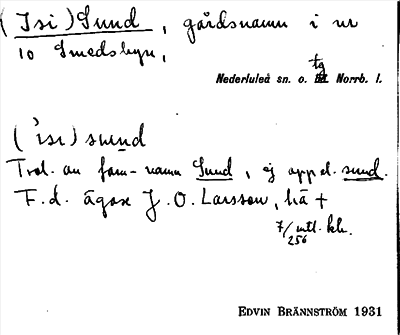 (Isi) Sund, gårdsnamn i nr
10 Smedsbyn,
tg
Nederluleå sn. o. Norrb. l.
('isi) sund
Trol. av fam-namn Sund, ej appel. sund.
F.d. ägare J. O. Larsson, bä +
7/ utl. kh.
256
EDVIN BRÄNNSTRÖM 1931